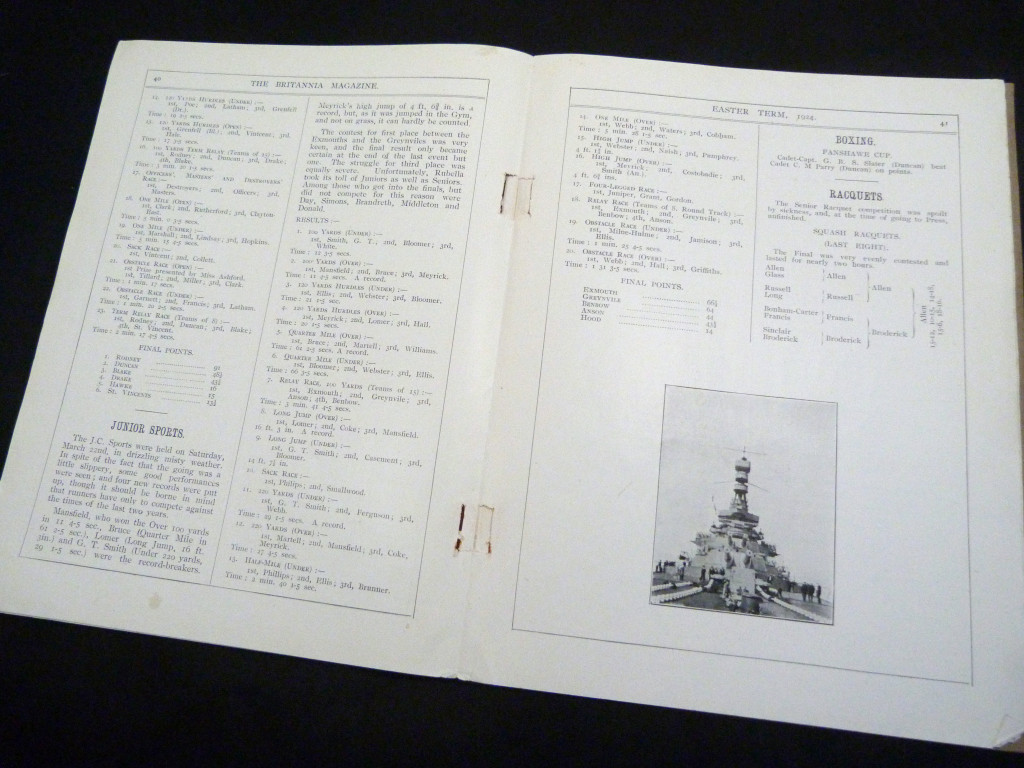 40
THE BRITANNIA MAGAZINE.
14. 120 YARDS HURDLES (UNDER) :—
1st, Poe; 2nd, Latham; 3rd, Grenfell
(Dr.).
Time : 19 2-5 secs.
15. 120 YARDS HURDLES (OPEN) :—
1st, Grenfell (Bl.); 2nd, Vintcent; 3rd,
Hale.
Time : 17 3-5 secs.
16. 100 YARDS TERM RELAY (Teams of 15) :—
1st, Rodney; 2nd, Duncan; 3rd, Drake;
4th, Blake.
17. OFFICERS', MASTERS' AND DESTROYERS'
RACE :—
1st, Destroyers; 2nd, Officers; 3rd,
Masters.
18. ONE MILE (OPEN) :—
1st, Clark; 2nd, Rutherford; 3rd, Clayton
East.
19. ONE MILE (UNDER) :—
1st, Marshall; 2nd, Lindsay; 3rd, Hopkins.
20. SACK RACE :—
1st, Vintcent; 2nd, Collett.
21. OBSTACLE RACE (OPEN) :—
1st Prize presented by Miss Ashford.
1st, Tillard; 2nd, Miller; 3rd, Clark.
Time : 1 min. 17 secs.
22. OBSTACLE RACE (UNDER) :—
1st, Garnett; 2nd, Francis; 3rd, Latham.
Time : 1 min. 20 2-5 secs.
23. TERM RELAY RACE (Teams of 8) :—
1st, Rodney; 2nd, Duncan; 3rd, Blake;
4th, St. Vincent.
Time : 2 min. 17 4-5 secs.
FINAL POINTS.
1. RODNEY 91
2. DUNCAN
3. BLAKE
4. DRAKE
5. HAWKE
6. ST. VINCENTS
JUNIOR SPORTS.
The J.C. Sports were held on Saturday,
March 22nd, in drizzling misty weather.
In spite of the fact that the going was a
little slippery, some good performances
were seen; and four new records were put
up, though it should be borne in mind
that runners have only to compete against
the times of the last two years.
Mansfield, who won the Over 100 yards
in 11 4-5 sec., Bruce (Quarter Mile in
61 2-5 sec.), Lomer (Long Jump, 16 ft.
3in.) and G. T. Smith (Under 220 yards,
29 1-5 sec.) were the record-breakers.
Meyrick's high jump of 4 ft. 6¾ in. is a
record, but, as it was jumped in the Gym,
and not on grass, it can hardly be counted.
The contest for first place between the
Exmouths and the Greynviles was very
keen, and the final result only became
certain at the end of the last event but
one. The struggle for third place was
equally severe. Unfortunately, Rubella
took its toll of Juniors as well as Seniors.
Among those who got into the finals, but
did not compete for this reason were
Day, Simons, Brandreth, Middleton and
Donald.
RESULTS :—
1. 100 YARDS (UNDER) :—
1st, Smith, G. T.; 2nd, Bloomer; 3rd,
White.
Time : 12 3-5 secs.
2. 100 YARDS (OVER) :—
1st, Mansfield; 2nd, Bruce; 3rd, Meyrick.
Time : 11 4-5 secs. A record.
3. 120 YARDS HURDLES (UNDER) :—
1st, Ellis; 2nd, Webster; 3rd, Bloomer.
Time : 21 1-5 sec.
4. 120 YARDS HURDLES (OVER) :—
1st, Meyrick; 2nd, Lomer; 3rd, Hall.
Time : 20 1-5 secs.
5. QUARTER MILE (OVER) :—
1st, Bruce; 2nd, Martell; 3rd, Williams.
Time : 61 2-5 secs. A record.
6. QUARTER MILE (UNDER) :—
1st, Bloomer; 2nd, Webster; 3rd, Ellis.
Time : 66 3-5 secs.
7. RELAY RACE, 100 YARDS (Teams of 15) :—
1st, Exmouth; 2nd, Greynvile; 3rd,
Anson; 4th, Benbow.
Time : 3 min. 41 4-5 secs.
8. LONG JUMP (OVER) :—
1st, Lomer; 2nd, Coke; 3rd, Mansfield.
16 ft. 3 in. A record.
9. LONG JUMP (UNDER) :—
1st, G. T. Smith; 2nd, Casement; 3rd,
Bloomer.
14 ft. 7½ in.
10. SACK RACE :—
1st, Philips; 2nd, Smallwood.
11. 220 YARDS (UNDER) :—
1st, G. T. Smith; 2nd, Ferguson; 3rd,
Webb.
Time : 29 1-5 secs. A record.
12. 220 YARDS (OVER) :—
1st, Martell; 2nd, Mansfield; 3rd, Coke,
Meyrick.
Time : 27 4-5 secs.
13. HALF-MILE (UNDER) :—
1st, Phillips; 2nd, Ellis; 3rd, Brunner.
Time : 2 min. 40 1-5 sec.
EASTER TERM, 1924.
41
14. ONE MILE (OVER) :—
1st, Webb; 2nd, Waters; 3rd, Cobham.
Time : 5 min. 28 1-5 sec.
15. HIGH JUMP (UNDER) :—
1st, Webster; 2nd, Nalok; 3rd, Pamphrey.
16. HIGH JUMP (OVER) :—
1st, Meyrick; 2nd, Coetobadie; 3rd,
Smith (Art.).
4 ft. 6¾ ins.
17. FOUR-LEGGED RACE :—
1st, Juniper, Grant, Gordon.
18. RELAY RACE (Teams of 8, Round Track) :—
1st, Exmouth; 2nd, Greynvile; 3rd,
Benbow; 4th, Anson.
19. OBSTACLE RACE (UNDER) :—
1st, Milne-Hulme; 2nd, Jamison; 3rd,
Ellis.
Time : 1 min. 23 4-5 secs.
20. OBSTACLE RACE (OVER) :—
1st, Webb; 2nd, Hall; 3rd, Griffiths.
Time : 1 31 3-5 secs.
FINAL POINTS.
EXMOUTH 66½
GREYNVILE 64
BENBOW 44
ANSON 43½
HOOD 14
BOXING.
FANSHAWE CUP.
Cadet-Capt. G. R. B. Slater (Duncan) beat
Cadet C. M. Parry (Duncan) on points.
RACQUETS.
The Senior Racquet competition was spoilt
by sickness, and, at the time of going to Press,
unfinished.
SQUASH RACQUETS.
(LAST EIGHT).
The Final was very evenly contested and
lasted for nearly two hours.
Allen
Glass
Allen
Russell
Long
Russell
Allen
Bonham-Carter
Francis
Francis
Sinclair
Broderick
Broderick
Broderick
Allen